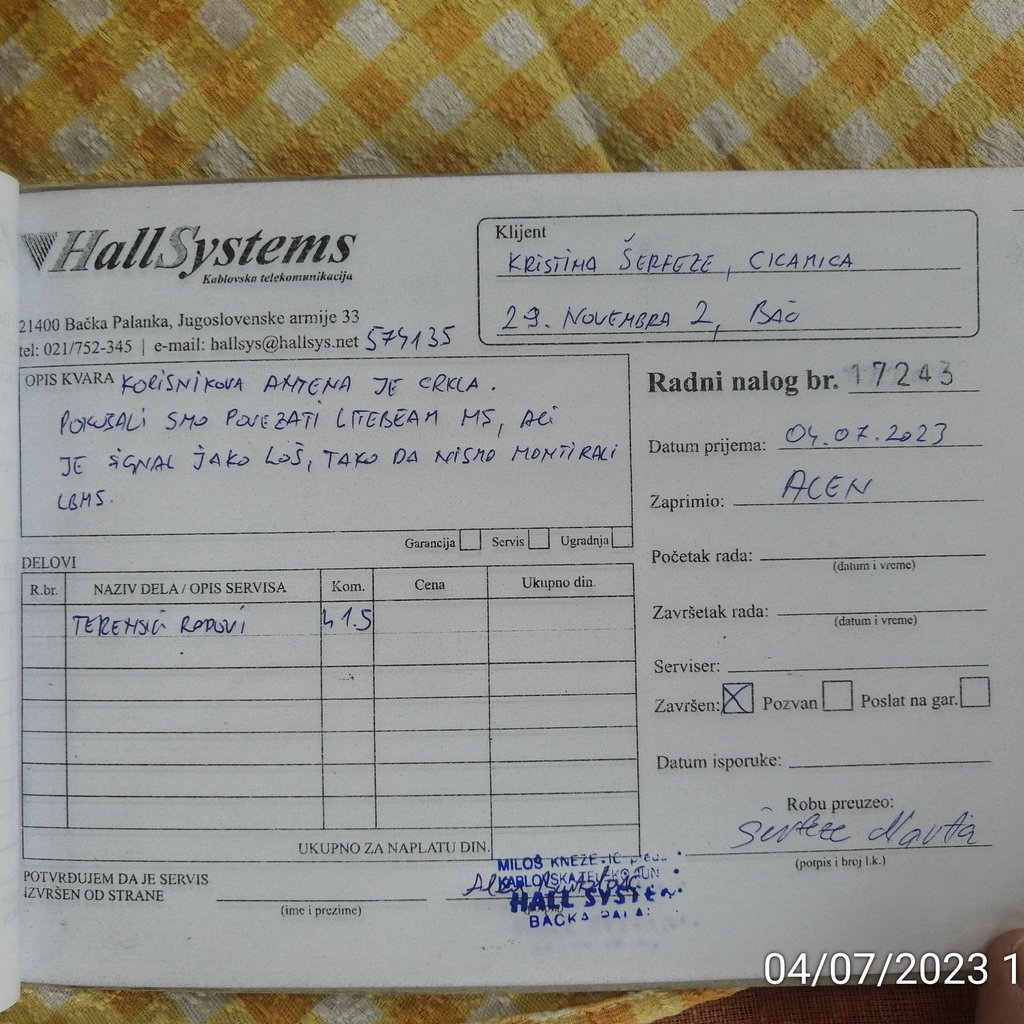 HallSystems
Kablovska telekomunikacija
21400 Bačka Palanka, Jugoslovenske armije 33
tel: 021/752-345 | e-mail: hallsys@hallsys.net 574135
Klijent
KRISTINA ŠERFEZE, CICANICA
29. NOVEMBRA 2, BAČ
OPIS KVARA KORISNIKOVA ANTENA JE CRKLA.
POKUŠALI SMO POVEZATI LITEBEAM M5, ALI
JE SIGNAL JAKO LOŠ, TAKO DA NISMO MONTIRALI
LBM5.
Garancija Servis Ugradnja
Radni nalog br. 17243
Datum prijema: 04.07.2023
Zaprimio: ALEN
Početak rada:
(datum i vreme)
Završetak rada:
(datum i vreme)
Serviser:
Završen: X Pozvan Poslat na gar.
Datum isporuke:
Robu preuzeo:
Šerfeze Marta
(potpis i broj l.k.)
DELOVI
R.br. NAZIV DELA / OPIS SERVISA Kom. Cena Ukupno din.
TERENSKI RADOVI h 1.5
UKUPNO ZA NAPLATU DIN.
POTVRĐUJEM DA JE SERVIS
IZVRŠEN OD STRANE
(ime i prezime)
Alen
MILOŠ KNEŽEVIĆ
KABLOVSKA
HALL SYSTEM
BAČKA PALA
04/07/2023 1